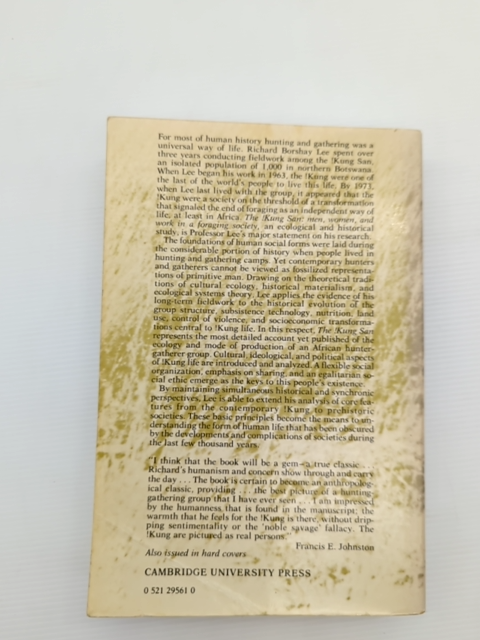 For most of human history hunting and gathering was a
universal way of life. Richard Borshay Lee spent over
three years conducting fieldwork among the !Kung San,
an isolated population of 1,000 in northern Botswana.
When Lee began his work in 1963, the !Kung were one of
the last of the world's people to live this life. By 1973,
when Lee last lived with the group, it appeared that the
!Kung were a society on the threshold of a transformation
that signaled the end of foraging as an independent way of
life, at least in Africa. The !Kung San: men, women, and
work in a foraging society, an ecological and historical
study, is Professor Lee's major statement on his research.
The foundations of human social forms were laid during
the considerable portion of history when people lived in
hunting and gathering camps. Yet contemporary hunters
and gatherers cannot be viewed as fossilized representa-
tions of primitive man. Drawing on the theoretical tradi-
tions of cultural ecology, historical materialism, and
ecological systems theory, Lee applies the evidence of his
long-term fieldwork to the historical evolution of the
group structure, subsistence technology, nutrition, land
use, control of violence, and socioeconomic transforma-
tions central to !Kung life. In this respect, The !Kung San
represents the most detailed account yet published of the
ecology and mode of production of an African hunter-
gatherer group. Cultural, ideological, and political aspects
of !Kung life are introduced and analyzed. A flexible social
organization, emphasis on sharing, and an egalitarian so-
cial ethic emerge as the keys to this people's existence.
By maintaining simultaneous historical and synchronic
perspectives, Lee is able to extend his analysis of core fea-
tures from the contemporary !Kung to prehistoric
societies. These basic principles become the means to un-
derstanding the form of human life that has been obscured
by the developments and complications of societies during
the last few thousand years.
"I think that the book will be a gem – a true classic...
Richard's humanism and concern show through and carry
the day . . . The book is certain to become an anthropolog-
ical classic, providing . . . the best picture of a hunting-
gathering group that I have ever seen . . . I am impressed
by the humanness that is found in the manuscript; the
warmth that he feels for the !Kung is there, without drip-
ping sentimentality or the 'noble savage' fallacy. The
!Kung are pictured as real persons."
Francis E. Johnston
Also issued in hard covers
CAMBRIDGE UNIVERSITY PRESS
0 521 29561 0